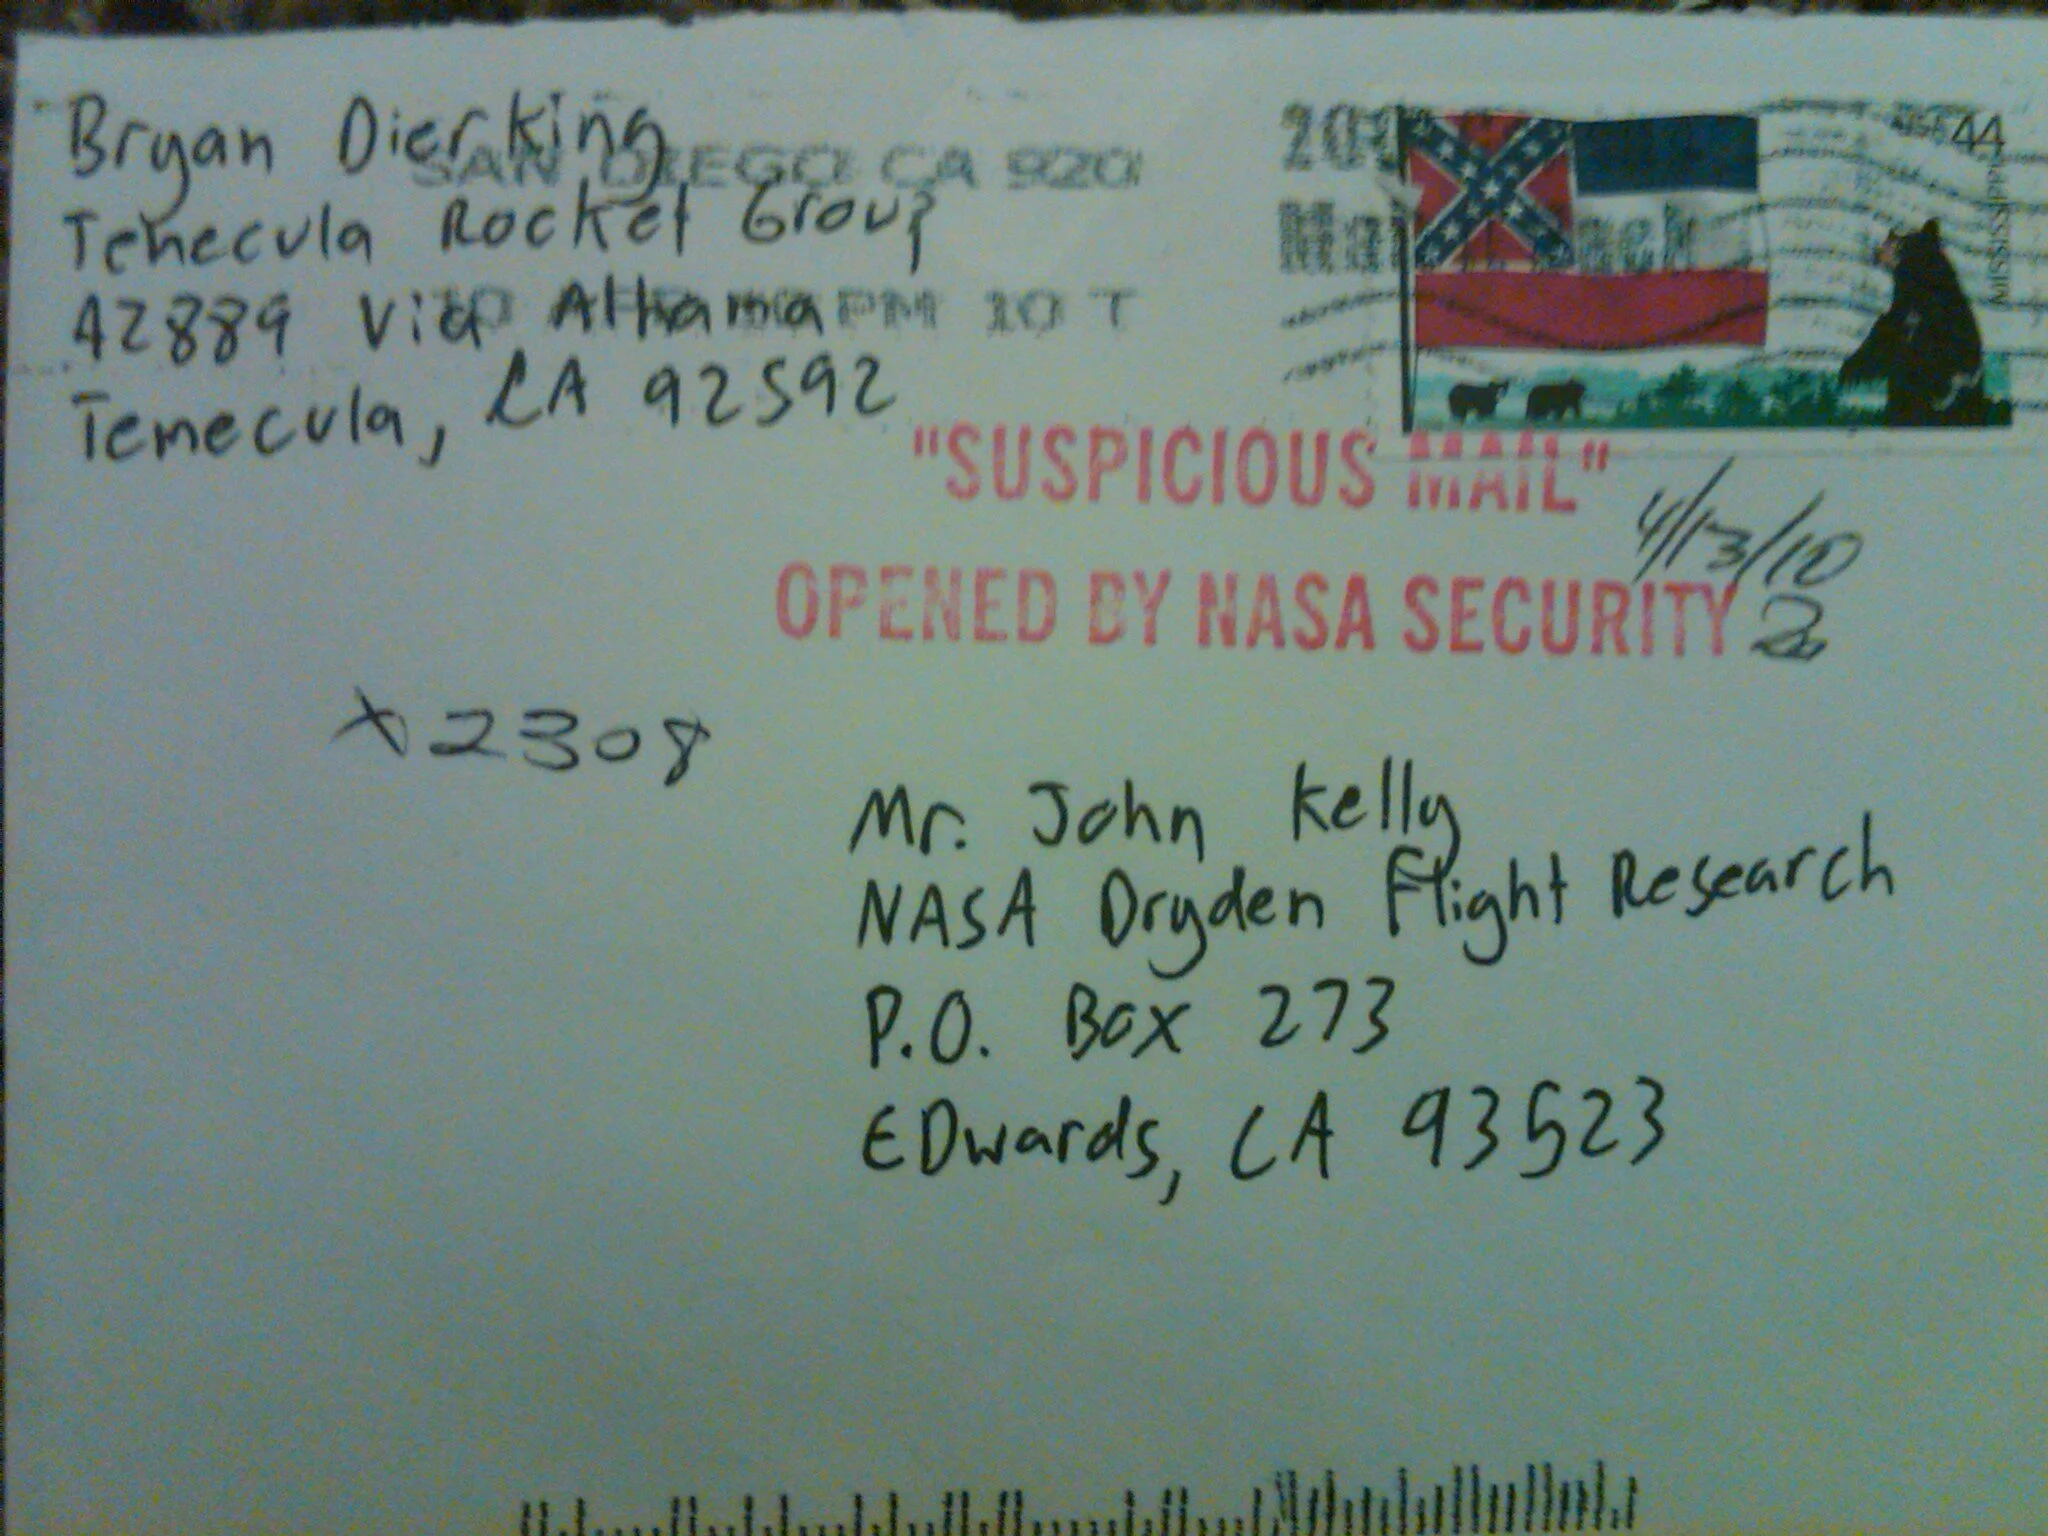 Bryan Dierking
Temecula Rocket Group
42889 Via Alhama
Temecula, CA 92592
SAN DIEGO CA 920
PM 10 T
USA 44
MISSISSIPPI
"SUSPICIOUS MAIL"
4/13/10
OPENED BY NASA SECURITY
x2308
Mr. John Kelly
NASA Dryden Flight Research
P.O. Box 273
EDwards, CA 93523